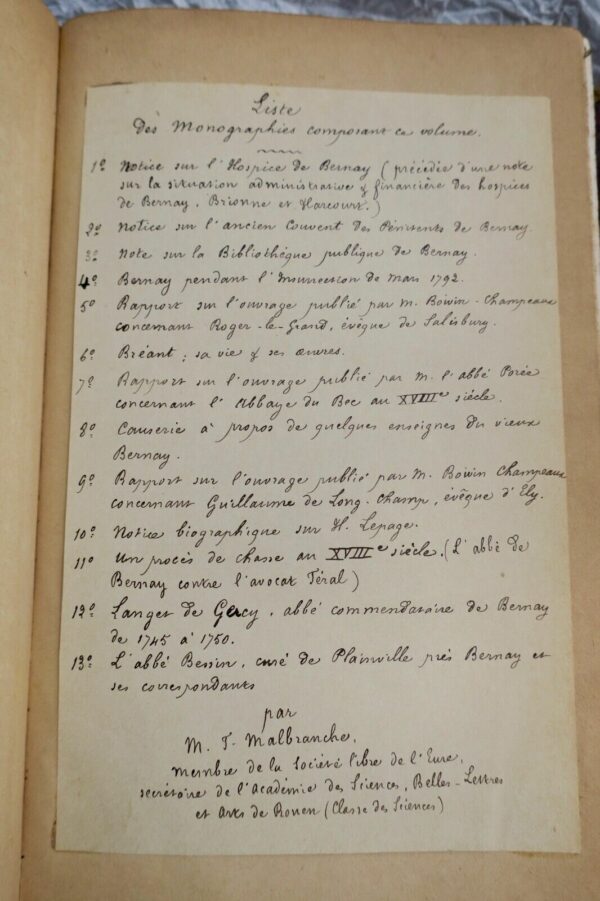 Liste
Des Monographies composant ce volume.
1º Notice sur l'Hospice de Bernay (précédée d'une note
sur la situation administrative & financière des hospices
de Bernay, Brionne et Harcourt.)
2º Notice sur l'ancien Couvent des Pénitents de Bernay
3º Note sur la Bibliothèque publique de Bernay.
4º Bernay pendant l'Insurrection de Mars 1792.
5º Rapport sur l'ouvrage publié par M. Boivin-Champeaux
concernant Roger-le-Grand, évêque de Salisbury.
6º Bréant ; sa vie & ses œuvres.
7º Rapport sur l'ouvrage publié par M. l'abbé Porée
concernant l'Abbaye du Bec au XVIIIe siècle.
8º Causerie à propos de quelques enseignes du vieux
Bernay.
9º Rapport sur l'ouvrage publié par M. Boivin Champeaux
concernant Guillaume de Long-Champ, évêque d'Ély.
10º Notice biographique sur H. Lepage.
11º Un procès de chasse au XVIIIe siècle. (L'abbé de
Bernay contre l'avocat Féral)
12º Langet de Gercy, abbé commendataire de Bernay
de 1745 à 1750.
13º L'abbé Bessin, curé de Plainville près Bernay et
ses correspondants
par
M. T. Malbranche,
membre de la Société libre de l'Eure,
secrétaire de l'Académie des Sciences, Belles-Lettres
et Arts de Rouen (Classe des Sciences)